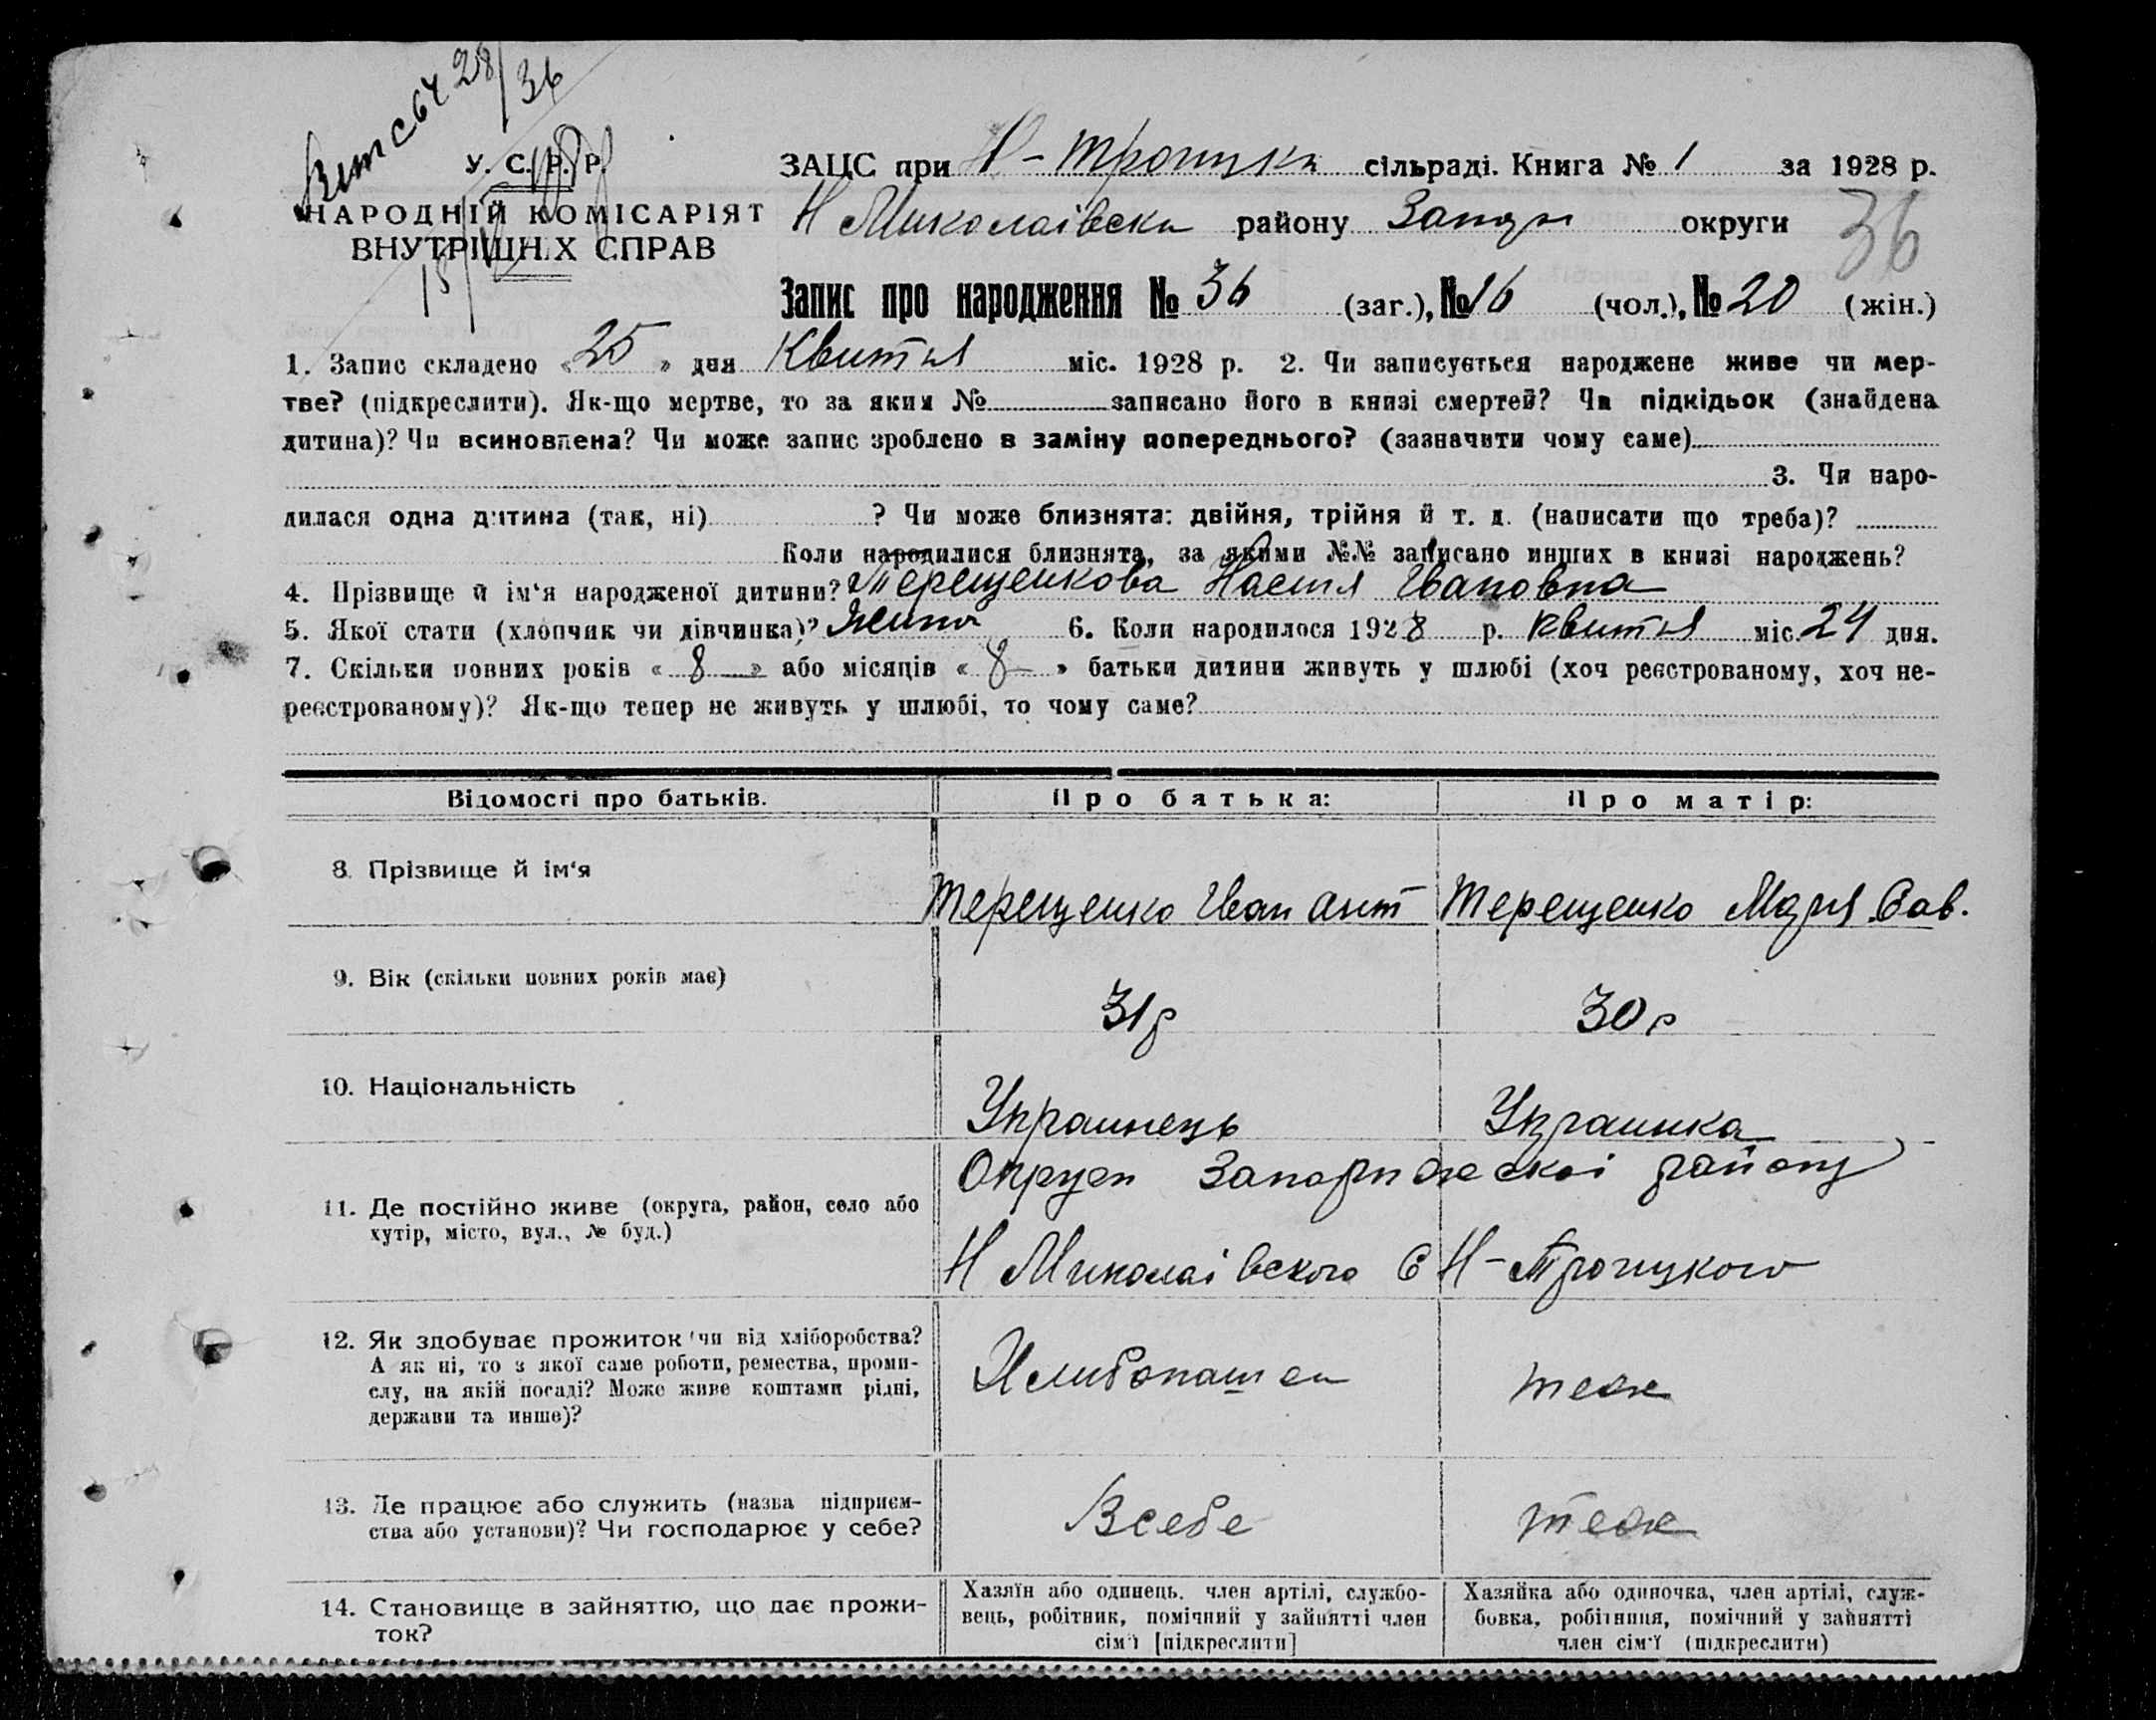 28/36
У. С. Р. Р.
НАРОДНІЙ КОМІСАРІЯТ
ВНУТРІШНІХ СПРАВ
ЗАЦС при Н-Троицки сільраді. Книга № 1 за 1928 р.
Н Миколаівски району Запор округи
36
Запис про народження № 36 (заг.), № 16 (чол.), № 20 (жін.)
1. Запис складено « 25 » дня Квитня міс. 1928 р. 2. Чи записується народжене живе чи мер-
тве? (підкреслити). Як-що мертве, то за яким № записано його в книзі смертей? Чи підкідьок (знайдена
дитина)? Чи всиновлена? Чи може запис зроблено в заміну попереднього? (зазначити чому саме)
3. Чи наро-
дилася одна дитина (так, ні) ? Чи може близнята: двійня, трійня й т. д. (написати що треба)?
Коли народилися близнята, за якими №№ записано инших в книзі народжень?
4. Прізвище й ім'я народженої дитини? Терещенкова Настя Івановна
5. Якої стати (хлопчик чи дівчинка)? Жиноч 6. Коли народилося 1928 р. Квитня міс. 24 дня.
7. Скільки повних років « 8 » або місяців « 8 » батьки дитини живуть у шлюбі (хоч реєстрованому, хоч не-
реєстрованому)? Як-що тепер не живуть у шлюбі, то чому саме?
Відомості про батьків. Про батька: Про матір:
8. Прізвище й ім'я Терещенко Іван Ант Терещенко Мария Сав.
9. Вік (скільки повних років має) 31 р 30 р
10. Національність Украинець Украинка
11. Де постійно живе (округа, район, село або
хутір, місто, вул., № буд.)
Округи Запорижскоі району
Н Миколаівского С Н-Троицкого
12. Як здобуває прожиток (чи від хліборобства?
А як ні, то з якої саме роботи, ремества, проми-
слу, на якій посаді? Може живе коштами рідні,
держави та инше)?
Хлибопашец теж
13. Де працює або служить (назва підприєм-
ства або установи)? Чи господарює у себе?
Всебе теж
14. Становище в зайняттю, що дає прожи-
ток?
Хазяїн або одинець, член артілі, службо-
вець, робітник, помічний у зайнятті член
сім'ї [підкреслити]
Хазяйка або одиночка, член артілі, служ-
бовка, робітниця, помічний у зайнятті
член сім'ї (підкреслити)